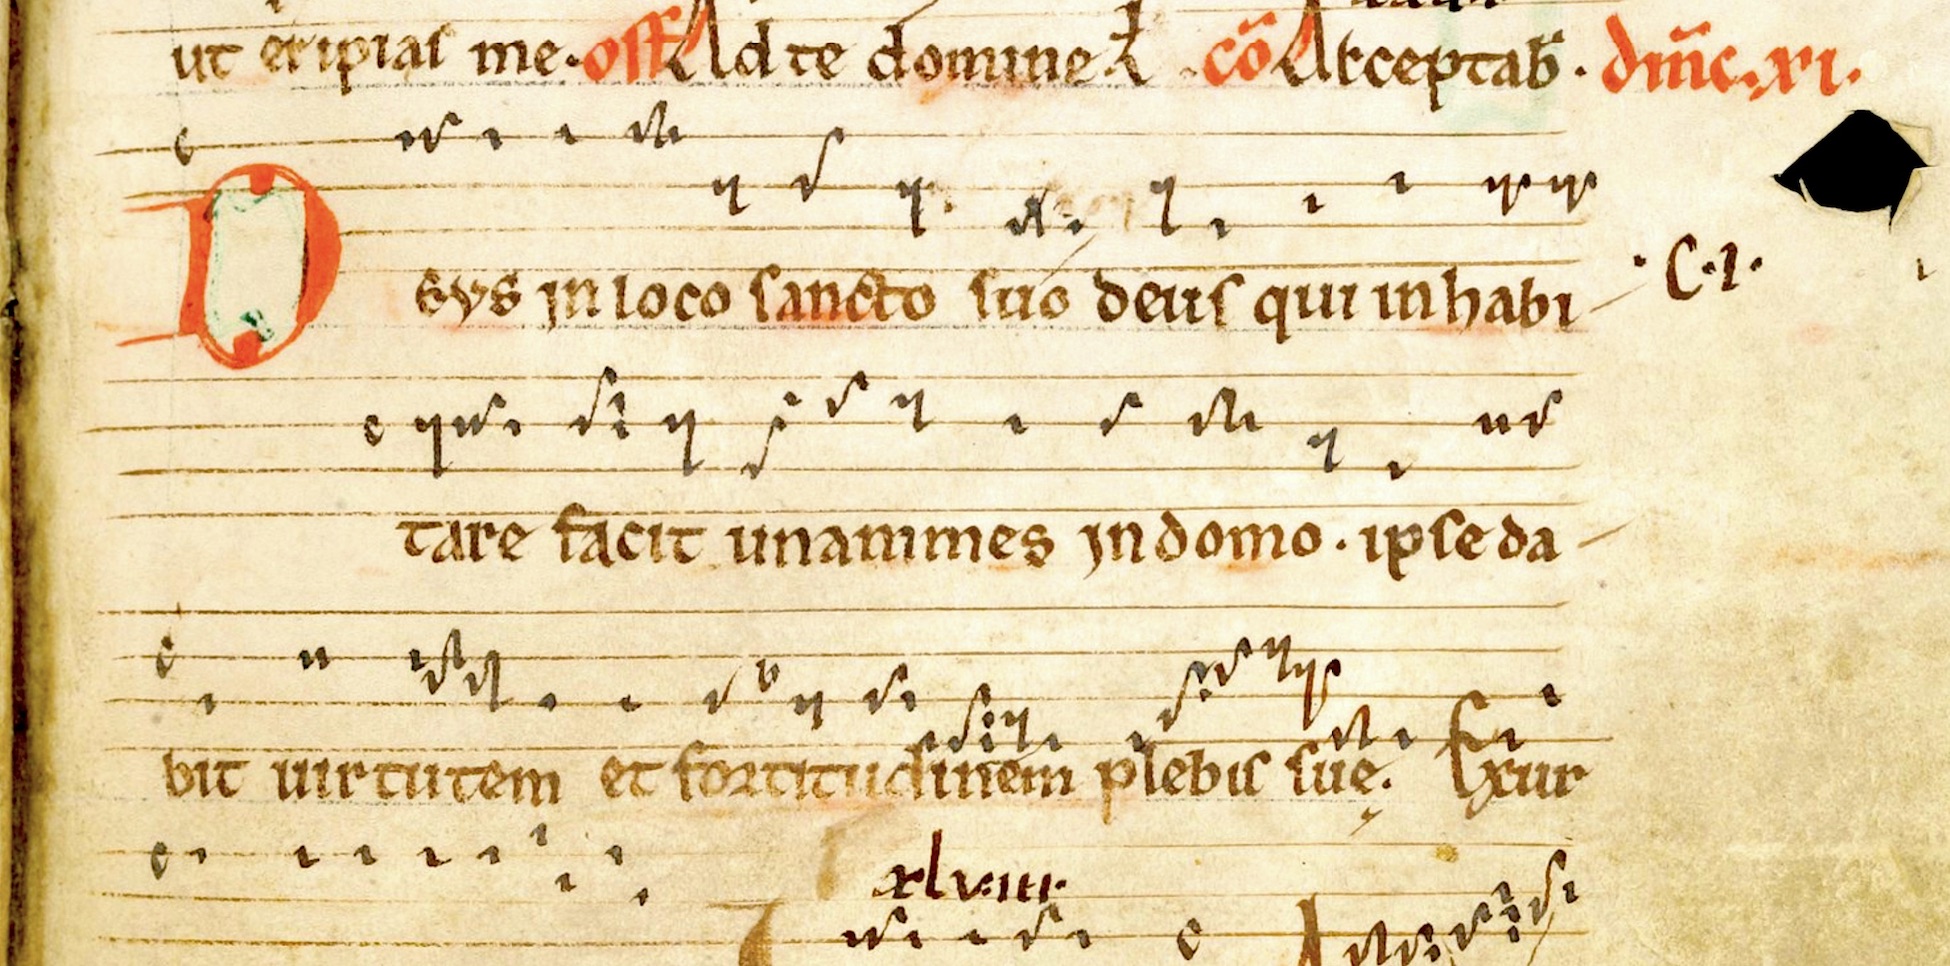 ut eripias me. off Ad te domine .cō Acceptab. dm̄c.xi.
DEVS in loco sancto suo deus qui inhabi
C.I.
tare facit unanimes in domo. ipse da
bit uirtutem et fortitudinem plebis suę. Exur
xlviii